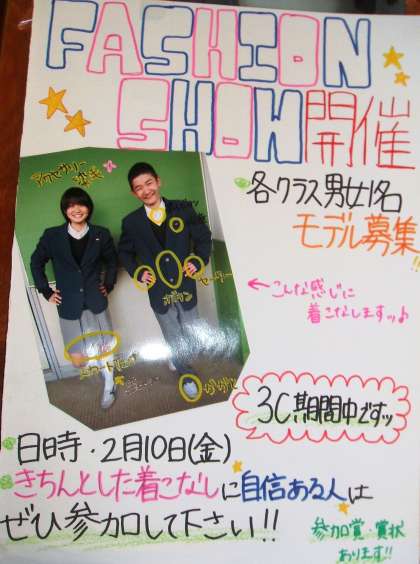 FASHION
SHOW開催
各クラス男女1名
モデル募集!!
アクセサリー
染毛
ボタン
セーター
かかと
←こんな感じに
着こなしますッ♪
3C期間中ですッ
日時・2月10日(金)
きちんとした着こなしに自信ある人は
ぜひ参加して下さい!!
参加賞・賞状
あります!!